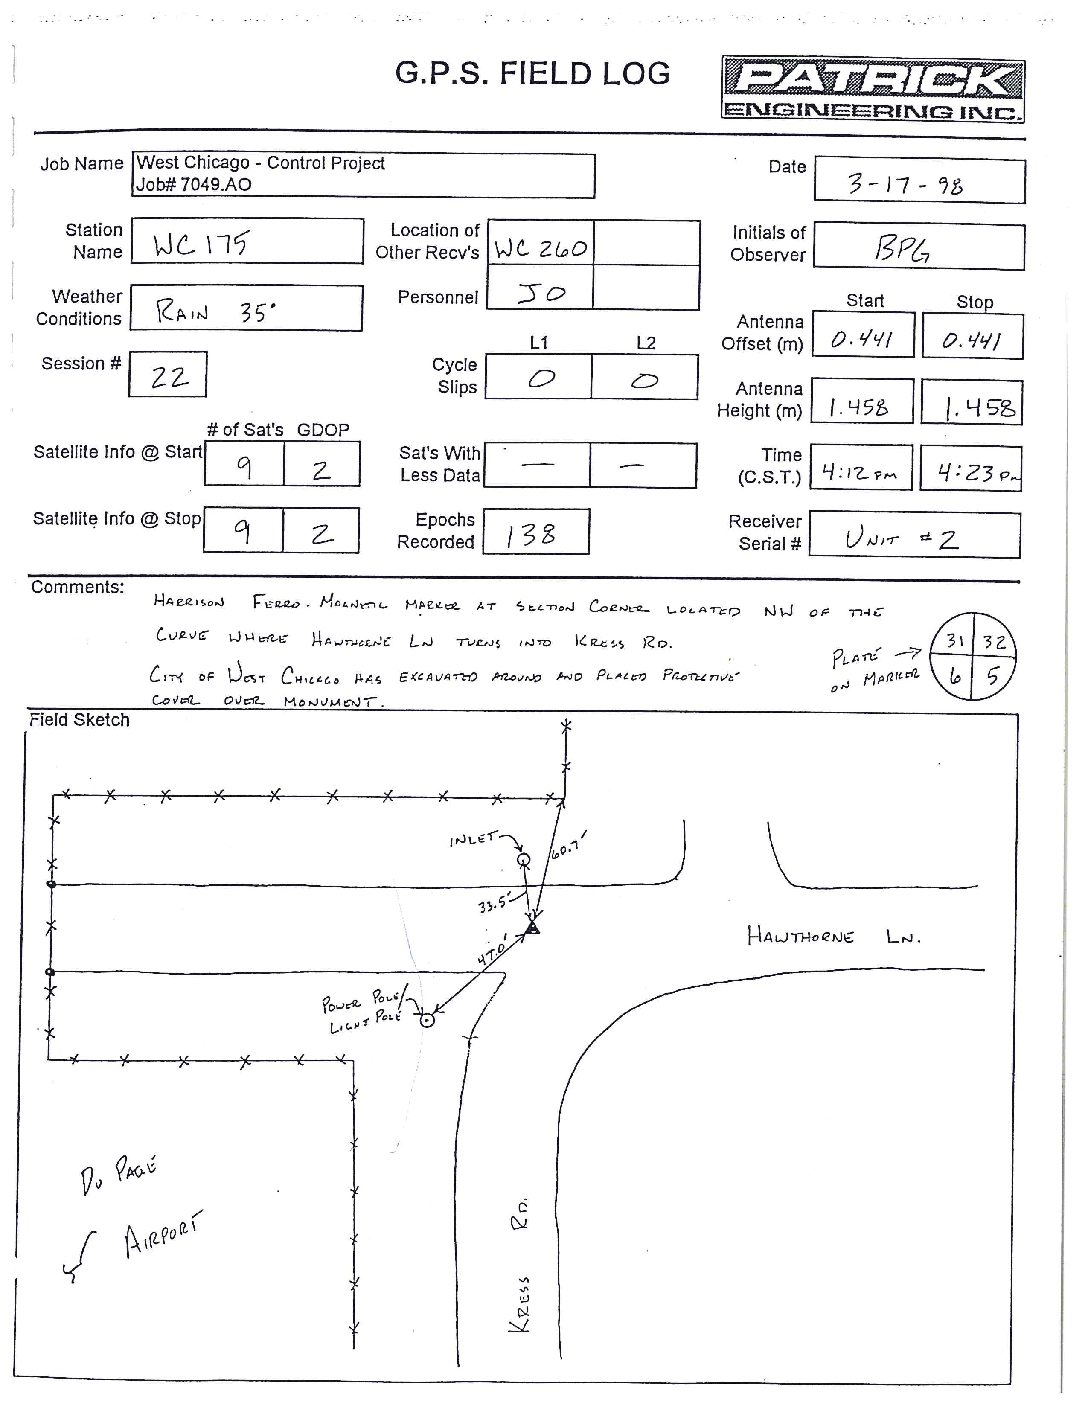 G.P.S. FIELD LOG
PATRICK
ENGINEERING INC.
Job Name West Chicago - Control Project
Job# 7049.AO
Date 3-17-98
Station Name WC 175
Location of Other Recv's WC 260
Initials of Observer BPG
Weather Conditions RAIN 35°
Personnel JO
Start Stop
Antenna Offset (m) 0.441 0.441
Session # 22
L1 L2
Cycle Slips 0 0
Antenna Height (m) 1.458 1.458
# of Sat's GDOP
Satellite Info @ Start 9 2
Sat's With Less Data — —
Time (C.S.T.) 4:12 PM 4:23 PM
Satellite Info @ Stop 9 2
Epochs Recorded 138
Receiver Serial # UNIT #2
Comments:
HARRISON FERRO-MAGNETIC MARKER AT SECTION CORNER LOCATED NW OF THE
CURVE WHERE HAWTHORNE LN TURNS INTO KRESS RD.
CITY OF WEST CHICAGO HAS EXCAVATED AROUND AND PLACED PROTECTIVE
COVER OVER MONUMENT.
PLATE → ON MARKER
31 32
6 5
Field Sketch
INLET
60.7'
33.5'
47.0'
HAWTHORNE LN.
POWER POLE/
LIGHT POLE
DU PAGE
AIRPORT
KRESS RD.